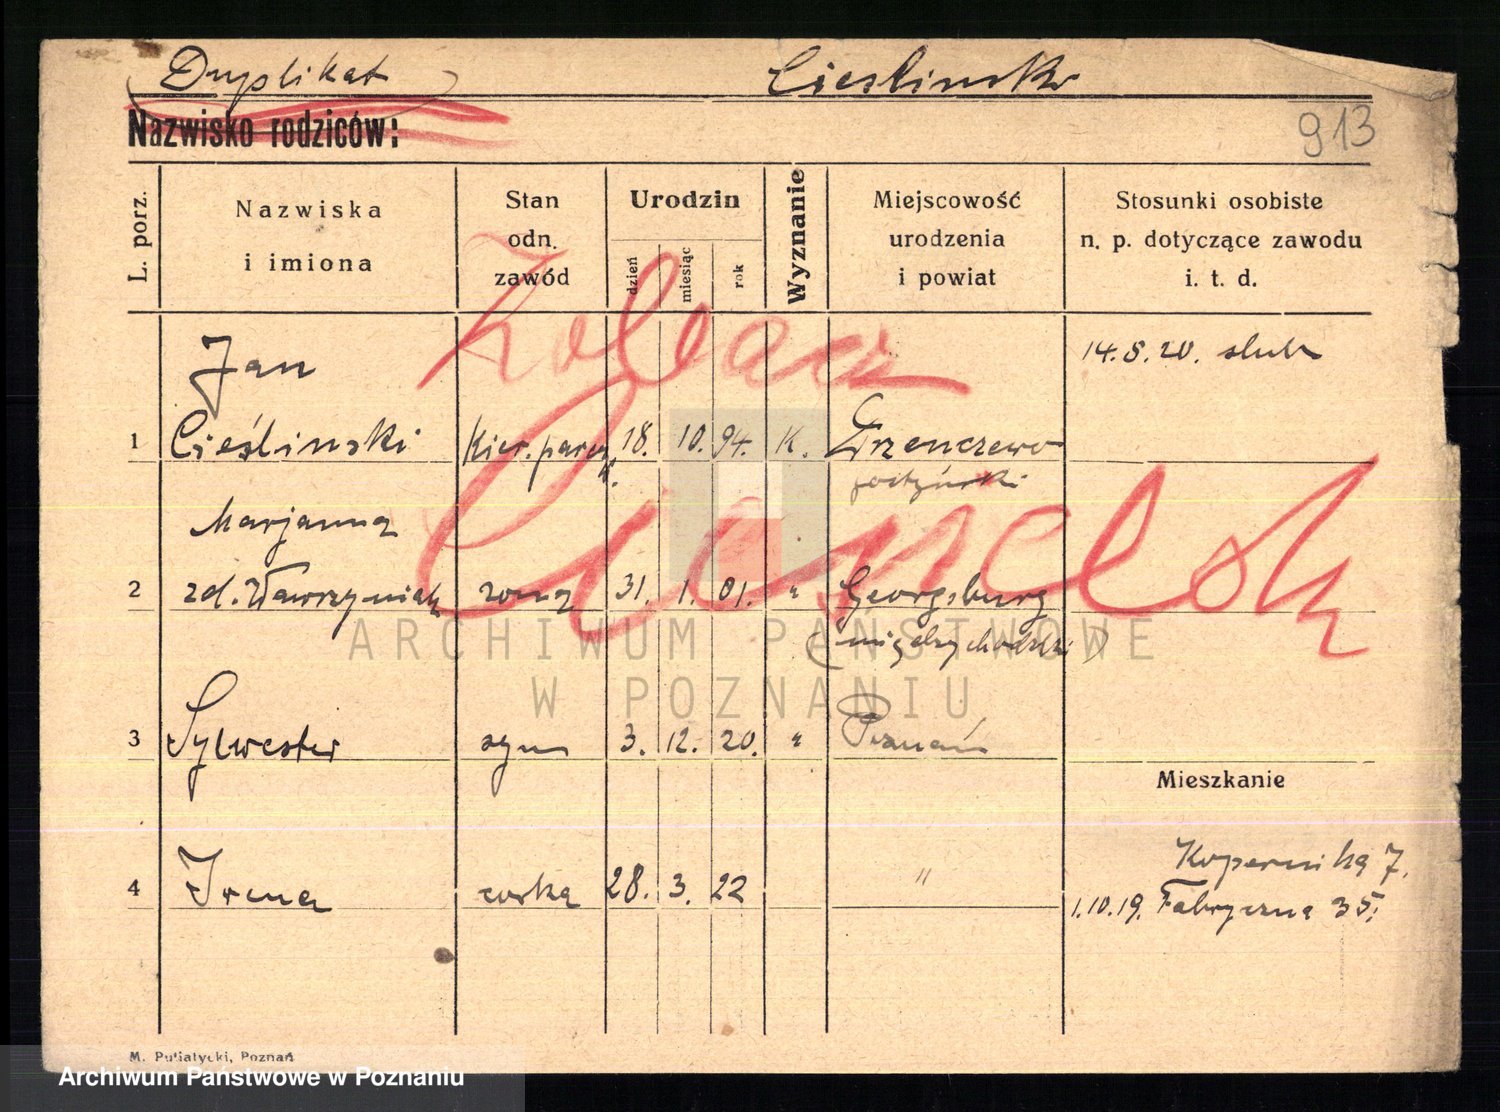 Duplikat Cieslinski
Nazwisko rodziców:
913
L. porz.
Nazwiska
i imiona
Stan
odn.
zawód
Urodzin
dzień
miesiąc
rok
Wyznanie
Miejscowość
urodzenia
i powiat
Stosunki osobiste
n. p. dotyczące zawodu
i. t. d.
Zobacz
Jan
14.8.20. slub
1 Cieślinski 18. 10. 94. K.
Marjanna
2 zd. Wawrzyniak zona 31. 1. 01. " Georgsburg
(międzychodzki)
ARCHIWUM PAŃSTWOWE
W POZNANIU
3 Sylwester syn 3. 12. 20. " Poznań
Mieszkanie
Kopernika 7.
4 Irena corka 28. 3. 22 "
1.10.19. Fabryczna 35.
M. Putiatycki, Poznań
Archiwum Państwowe w Poznaniu